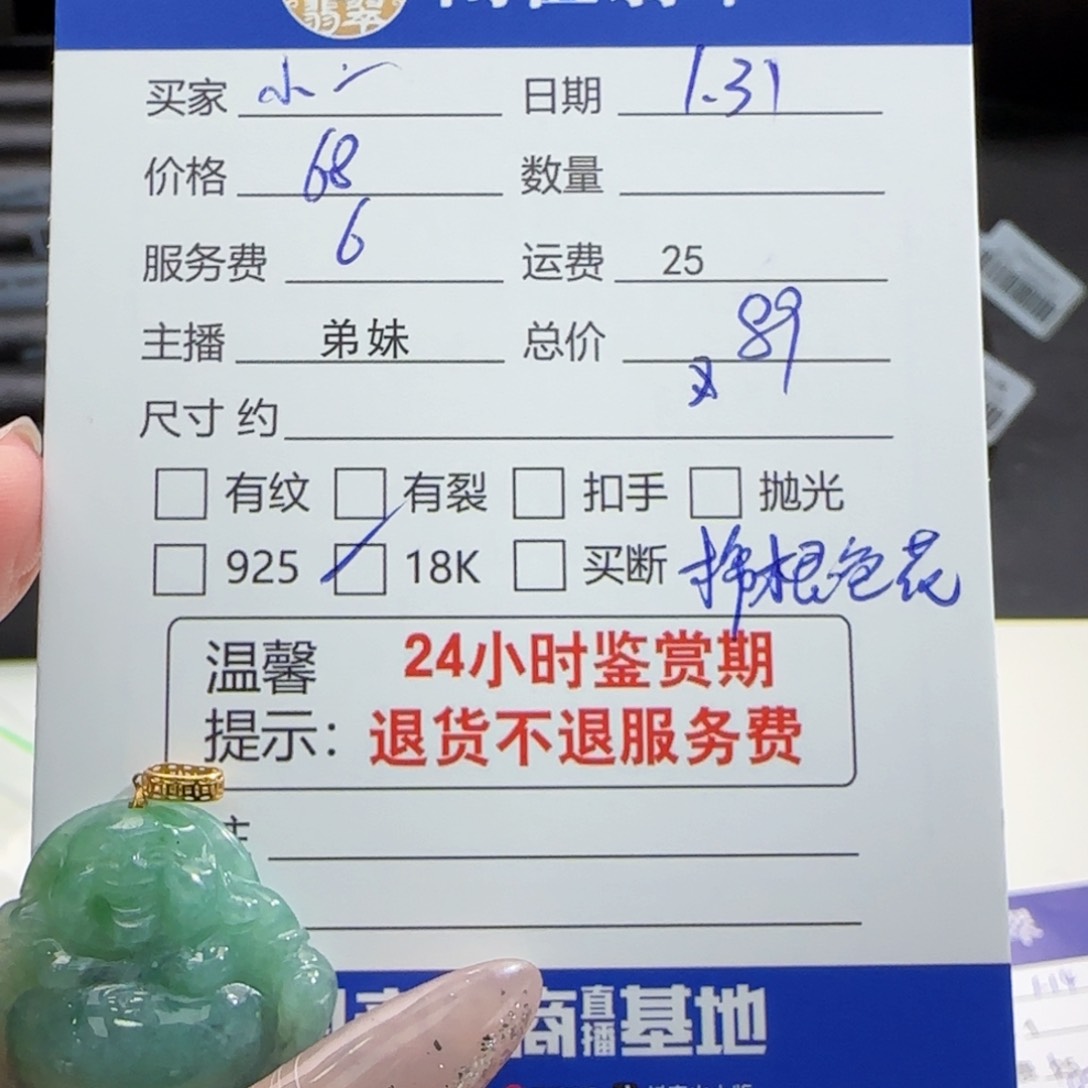 翡翠
买家 小二 日期 1.31
价格 68 数量
服务费 6 运费 25
主播 弟妹 总价 89
尺寸 约
有纹 有裂 扣手 抛光
925 18K 买断 棉根色花
温馨 24小时鉴赏期
提示： 退货不退服务费
注
商直播基地